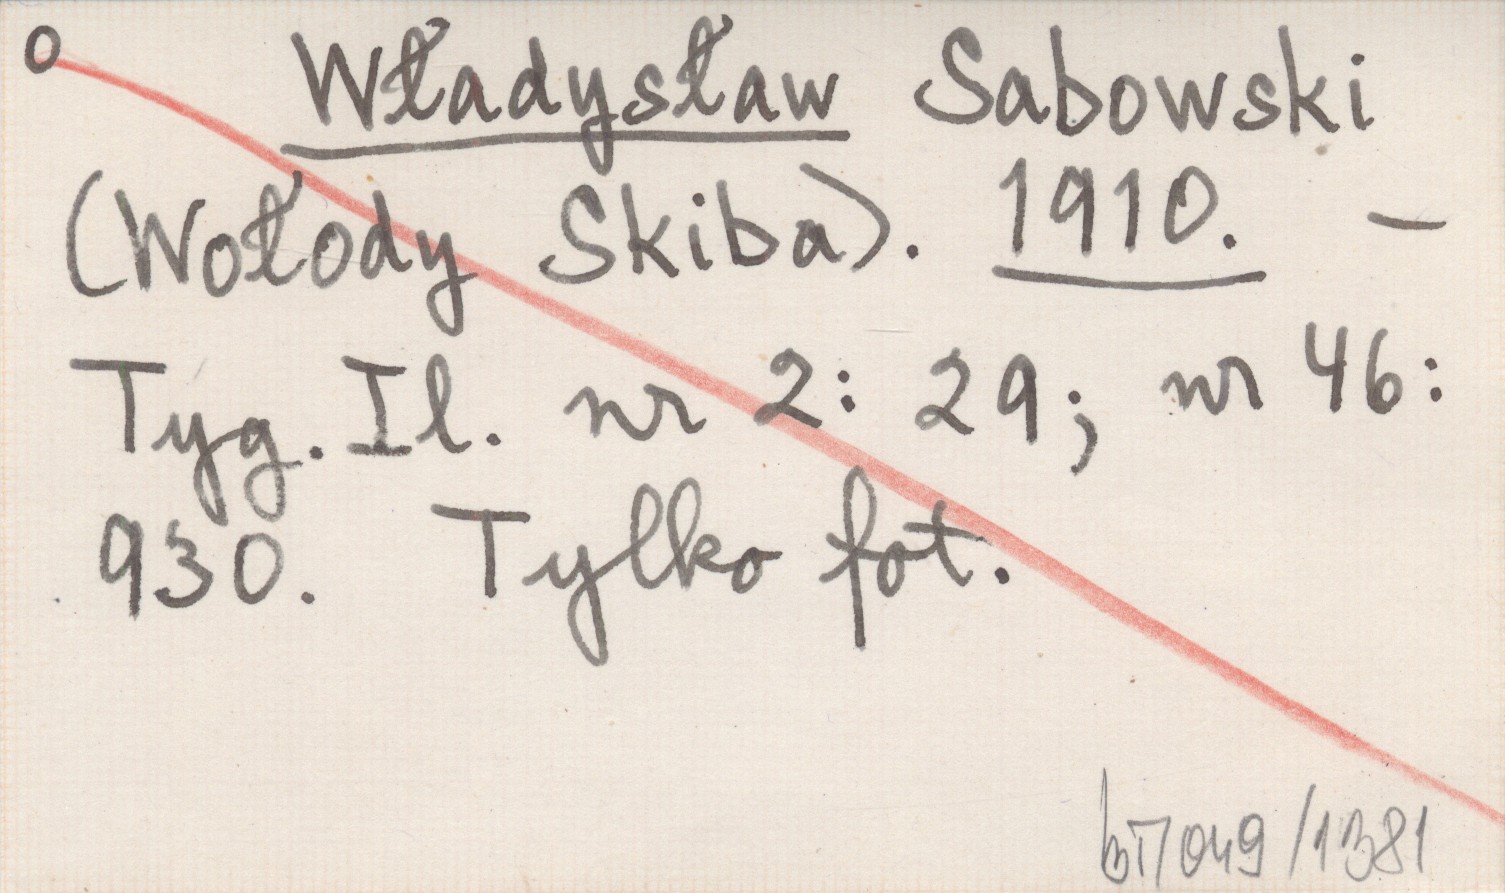 o Władysław Sabowski
(Wołody Skiba). 1910. –
Tyg. Il. nr 2: 29; nr 46:
930. Tylko fot.
/1381